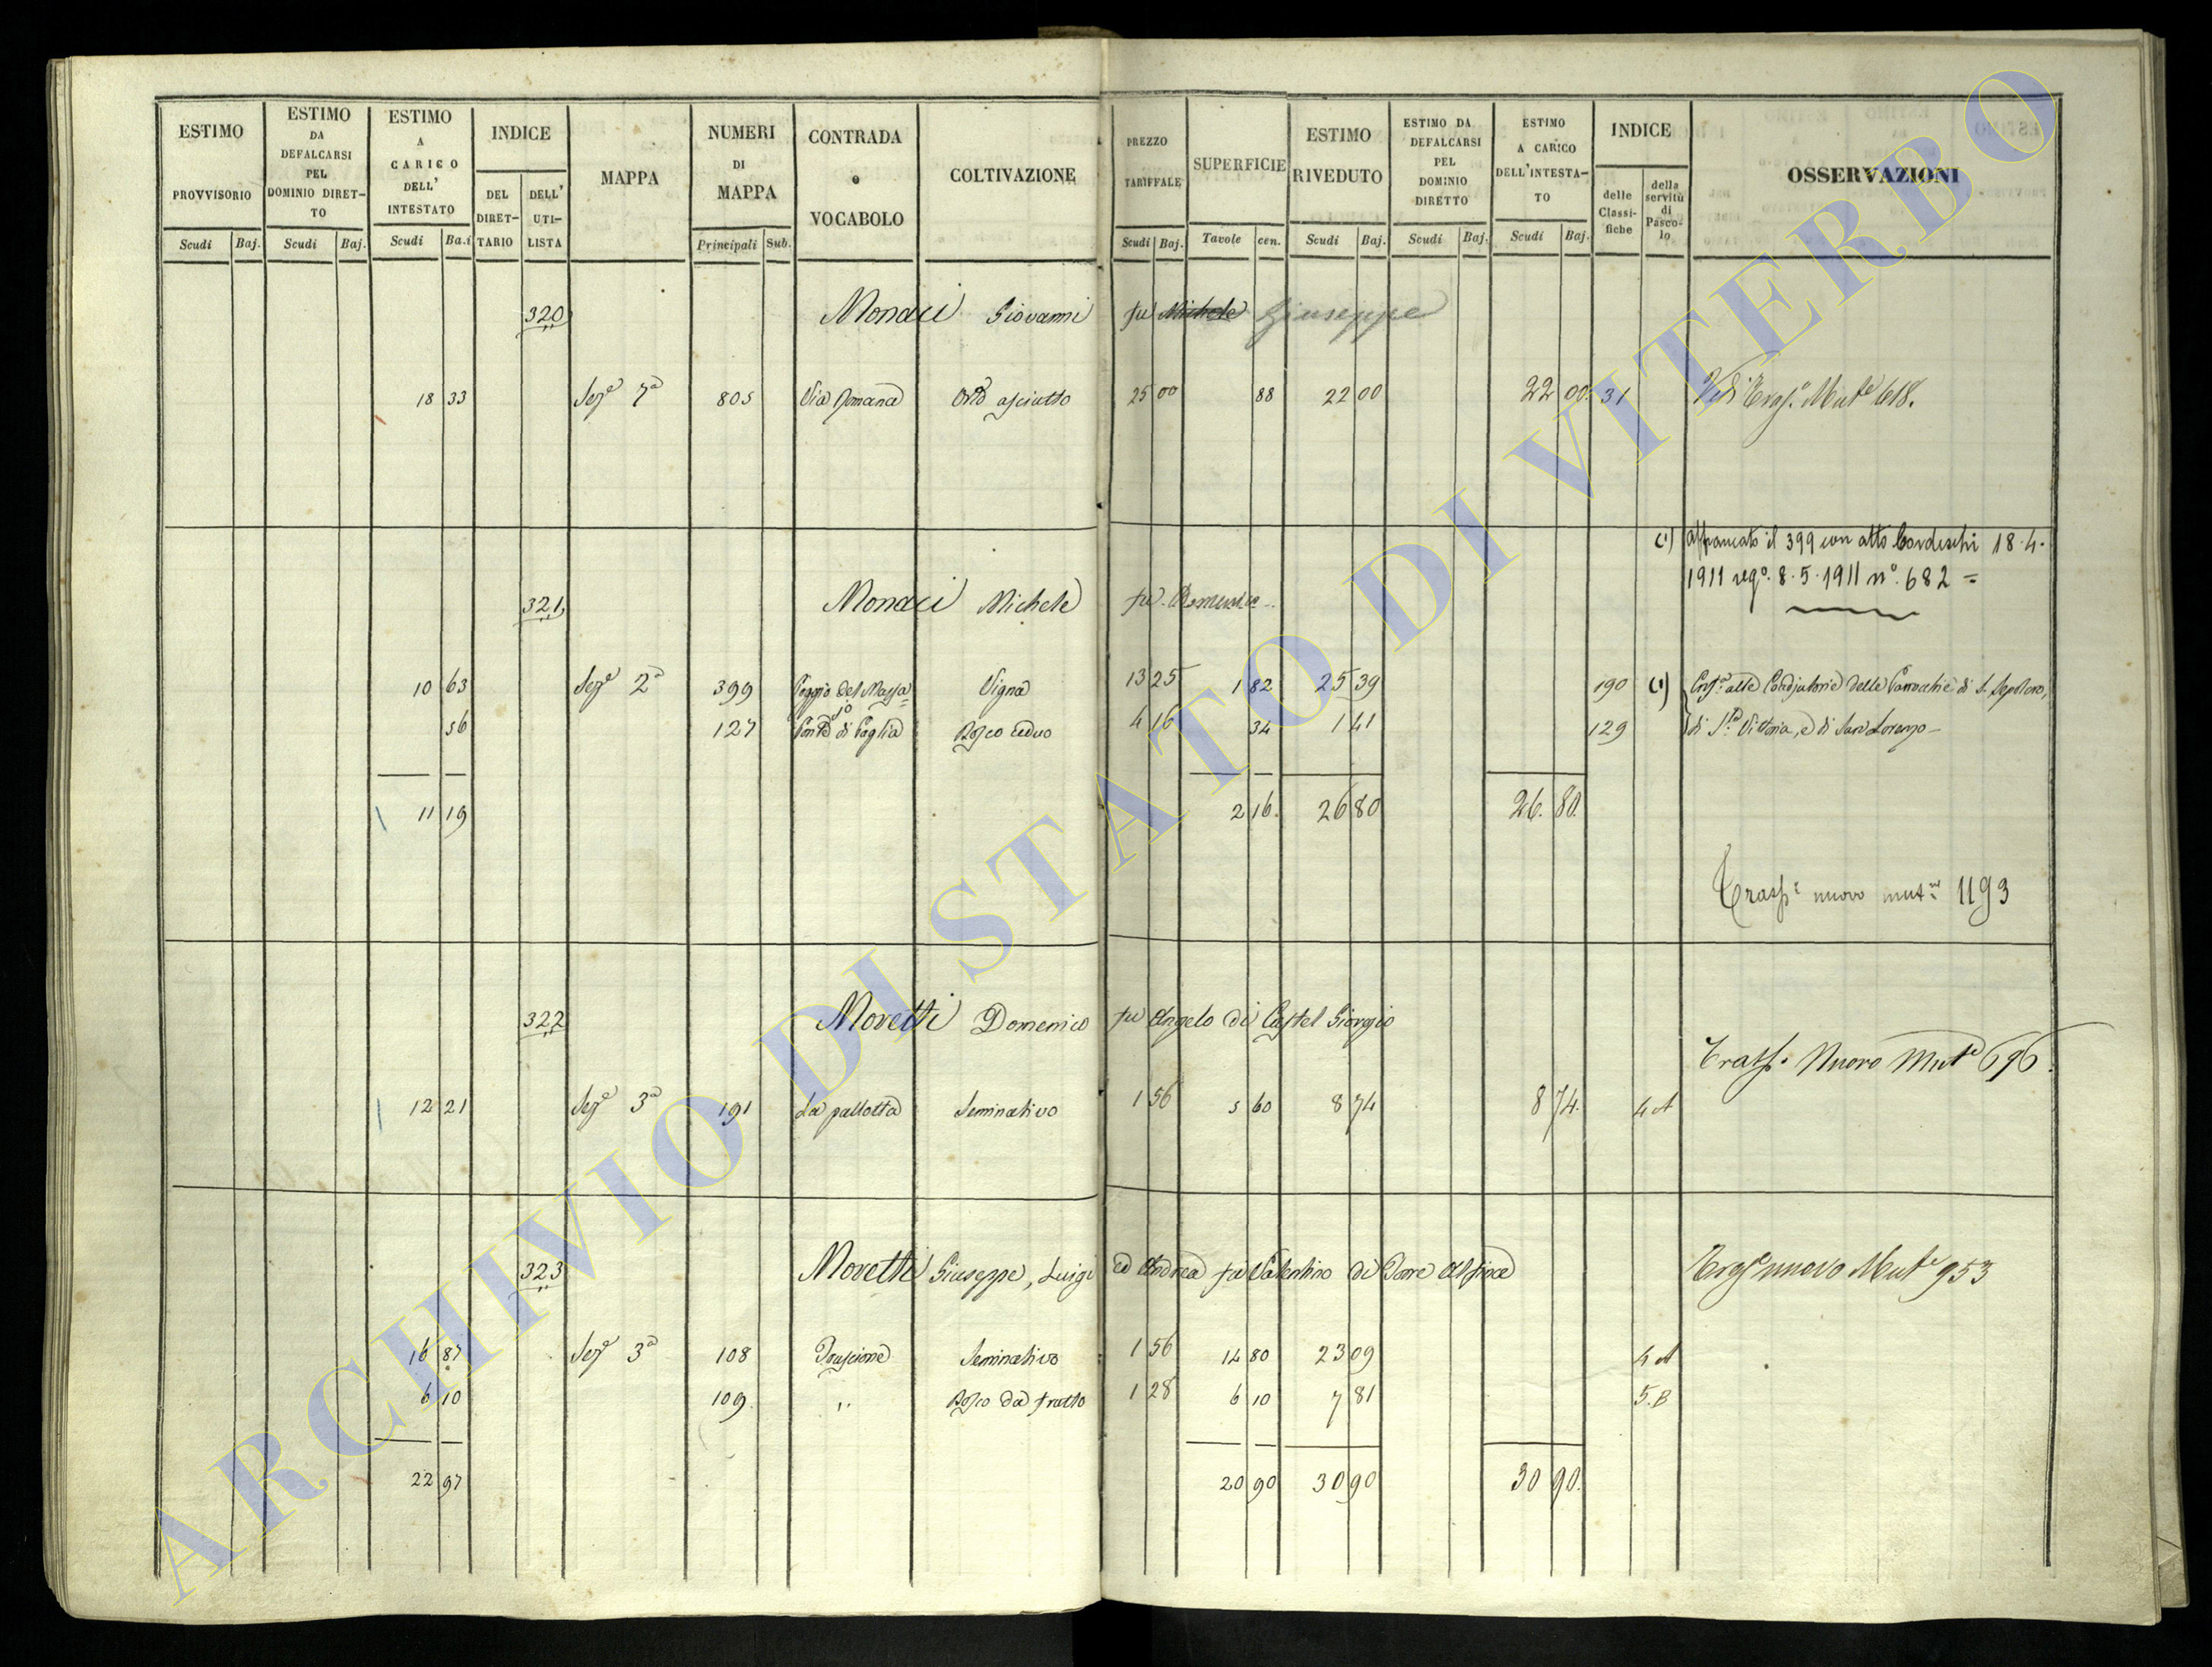 ESTIMO PROVVISORIO Scudi Baj.
ESTIMO DA DEFALCARSI PEL DOMINIO DIRET-TO Scudi Baj.
ESTIMO A CARICO DELL' INTESTATO Scudi Ba.i
INDICE DEL DIRET-TARIO DELL' UTI-LISTA
MAPPA
NUMERI DI MAPPA Principali Sub.
CONTRADA o VOCABOLO
COLTIVAZIONE
PREZZO TARIFFALE Scudi Baj.
SUPERFICIE Tavole cen.
ESTIMO RIVEDUTO Scudi Baj.
ESTIMO DA DEFALCARSI PEL DOMINIO DIRETTO Scudi Baj.
ESTIMO A CARICO DELL'INTESTA-TO Scudi Baj.
INDICE delle Classi-fiche della servitù di Pasco-lo
OSSERVAZIONI
320 Monaci Giovanni fu Michele Giuseppe
18 33 Sez.e 1a 805 Via Romana Orto asciutto 25 00 88 22 00 22 00. 31 Vedi Trasp.o Mut.e 618.
(1) Affrancato il 399 con atto Cordeschi 18.4.
1911 reg.o 8.5.1911 n.o 682 =
321 Monaci Michele fu
10 63 Sez.e 2a 399 Poggio del Massa Vigna 13 25 1 82 25 39 190 (1) alle Coadjutorie delle Parrocchie di S. Sepolcro,
56 127 di Paglia Bosco ceduo 4 16 34 1 41 129 di S.ta Vittoria, e di San Lorenzo
11 19 2 16. 26 80 26. 80.
Trasp.e nuovo mut.ne 1193
322 Moretti Domenico fu Angelo di Castel Giorgio
Trasp.o Nuovo Mut.e 696.
12 21 Sez.e 3a 191 La pallotta Seminativo 1 56 5 60 8 74 8 74. 4 A
323 Moretti Giuseppe, Luigi ed Andrea fu Valentino di Torre Alfina Trasp.e nuovo Mut.e 953
16 87 Sez.e 3a 108 Seminativo 1 56 14 80 23 09 4 A
6 10 109 " Bosco da frutto 1 28 6 10 7 81 5. B
22 97 20 90 30 90 30 90.
ARCHIVIO DI STATO DI VITERBO